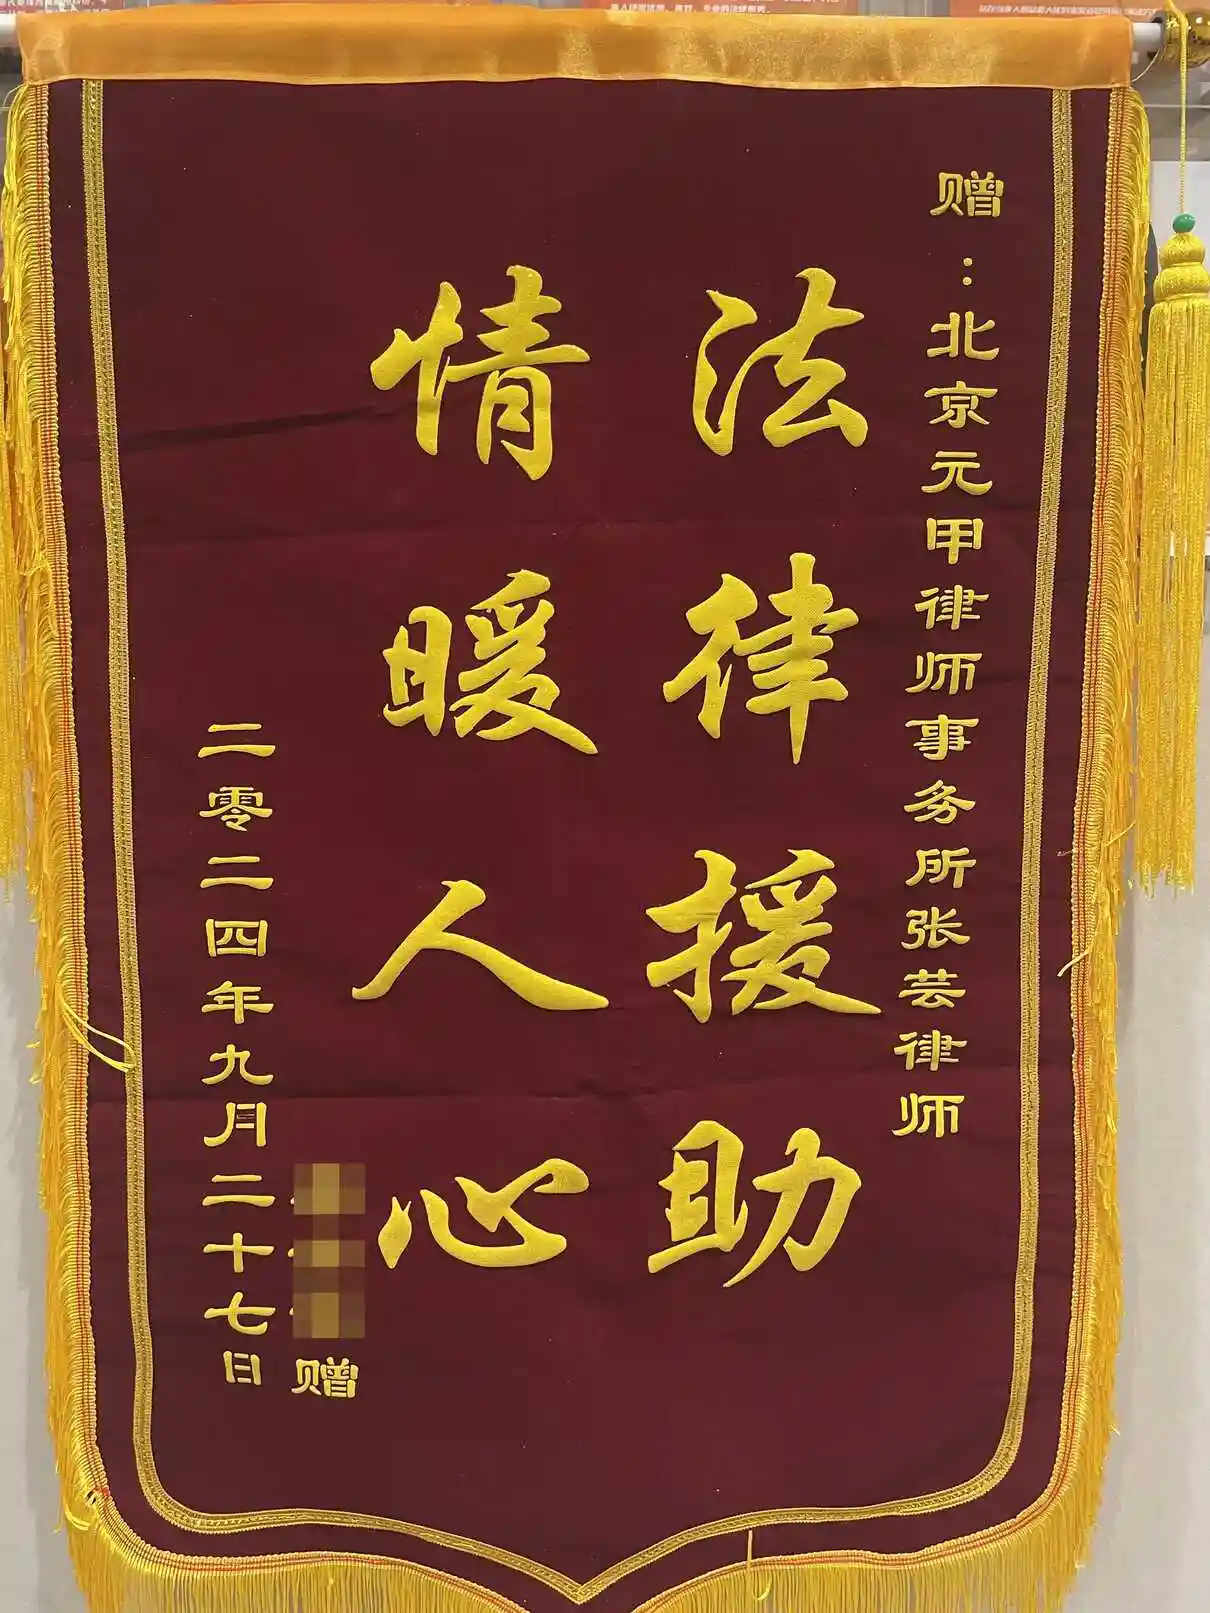 赠：北京元甲律师事务所张芸律师
法律援助
情暖人心
赠
二零二四年九月二十七日